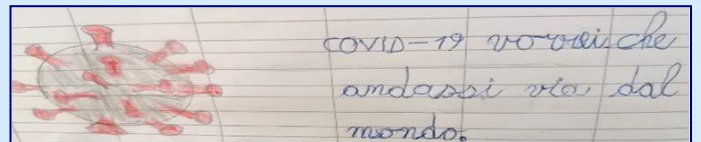 COVID-19 vorrei che
andassi via dal
mondo.